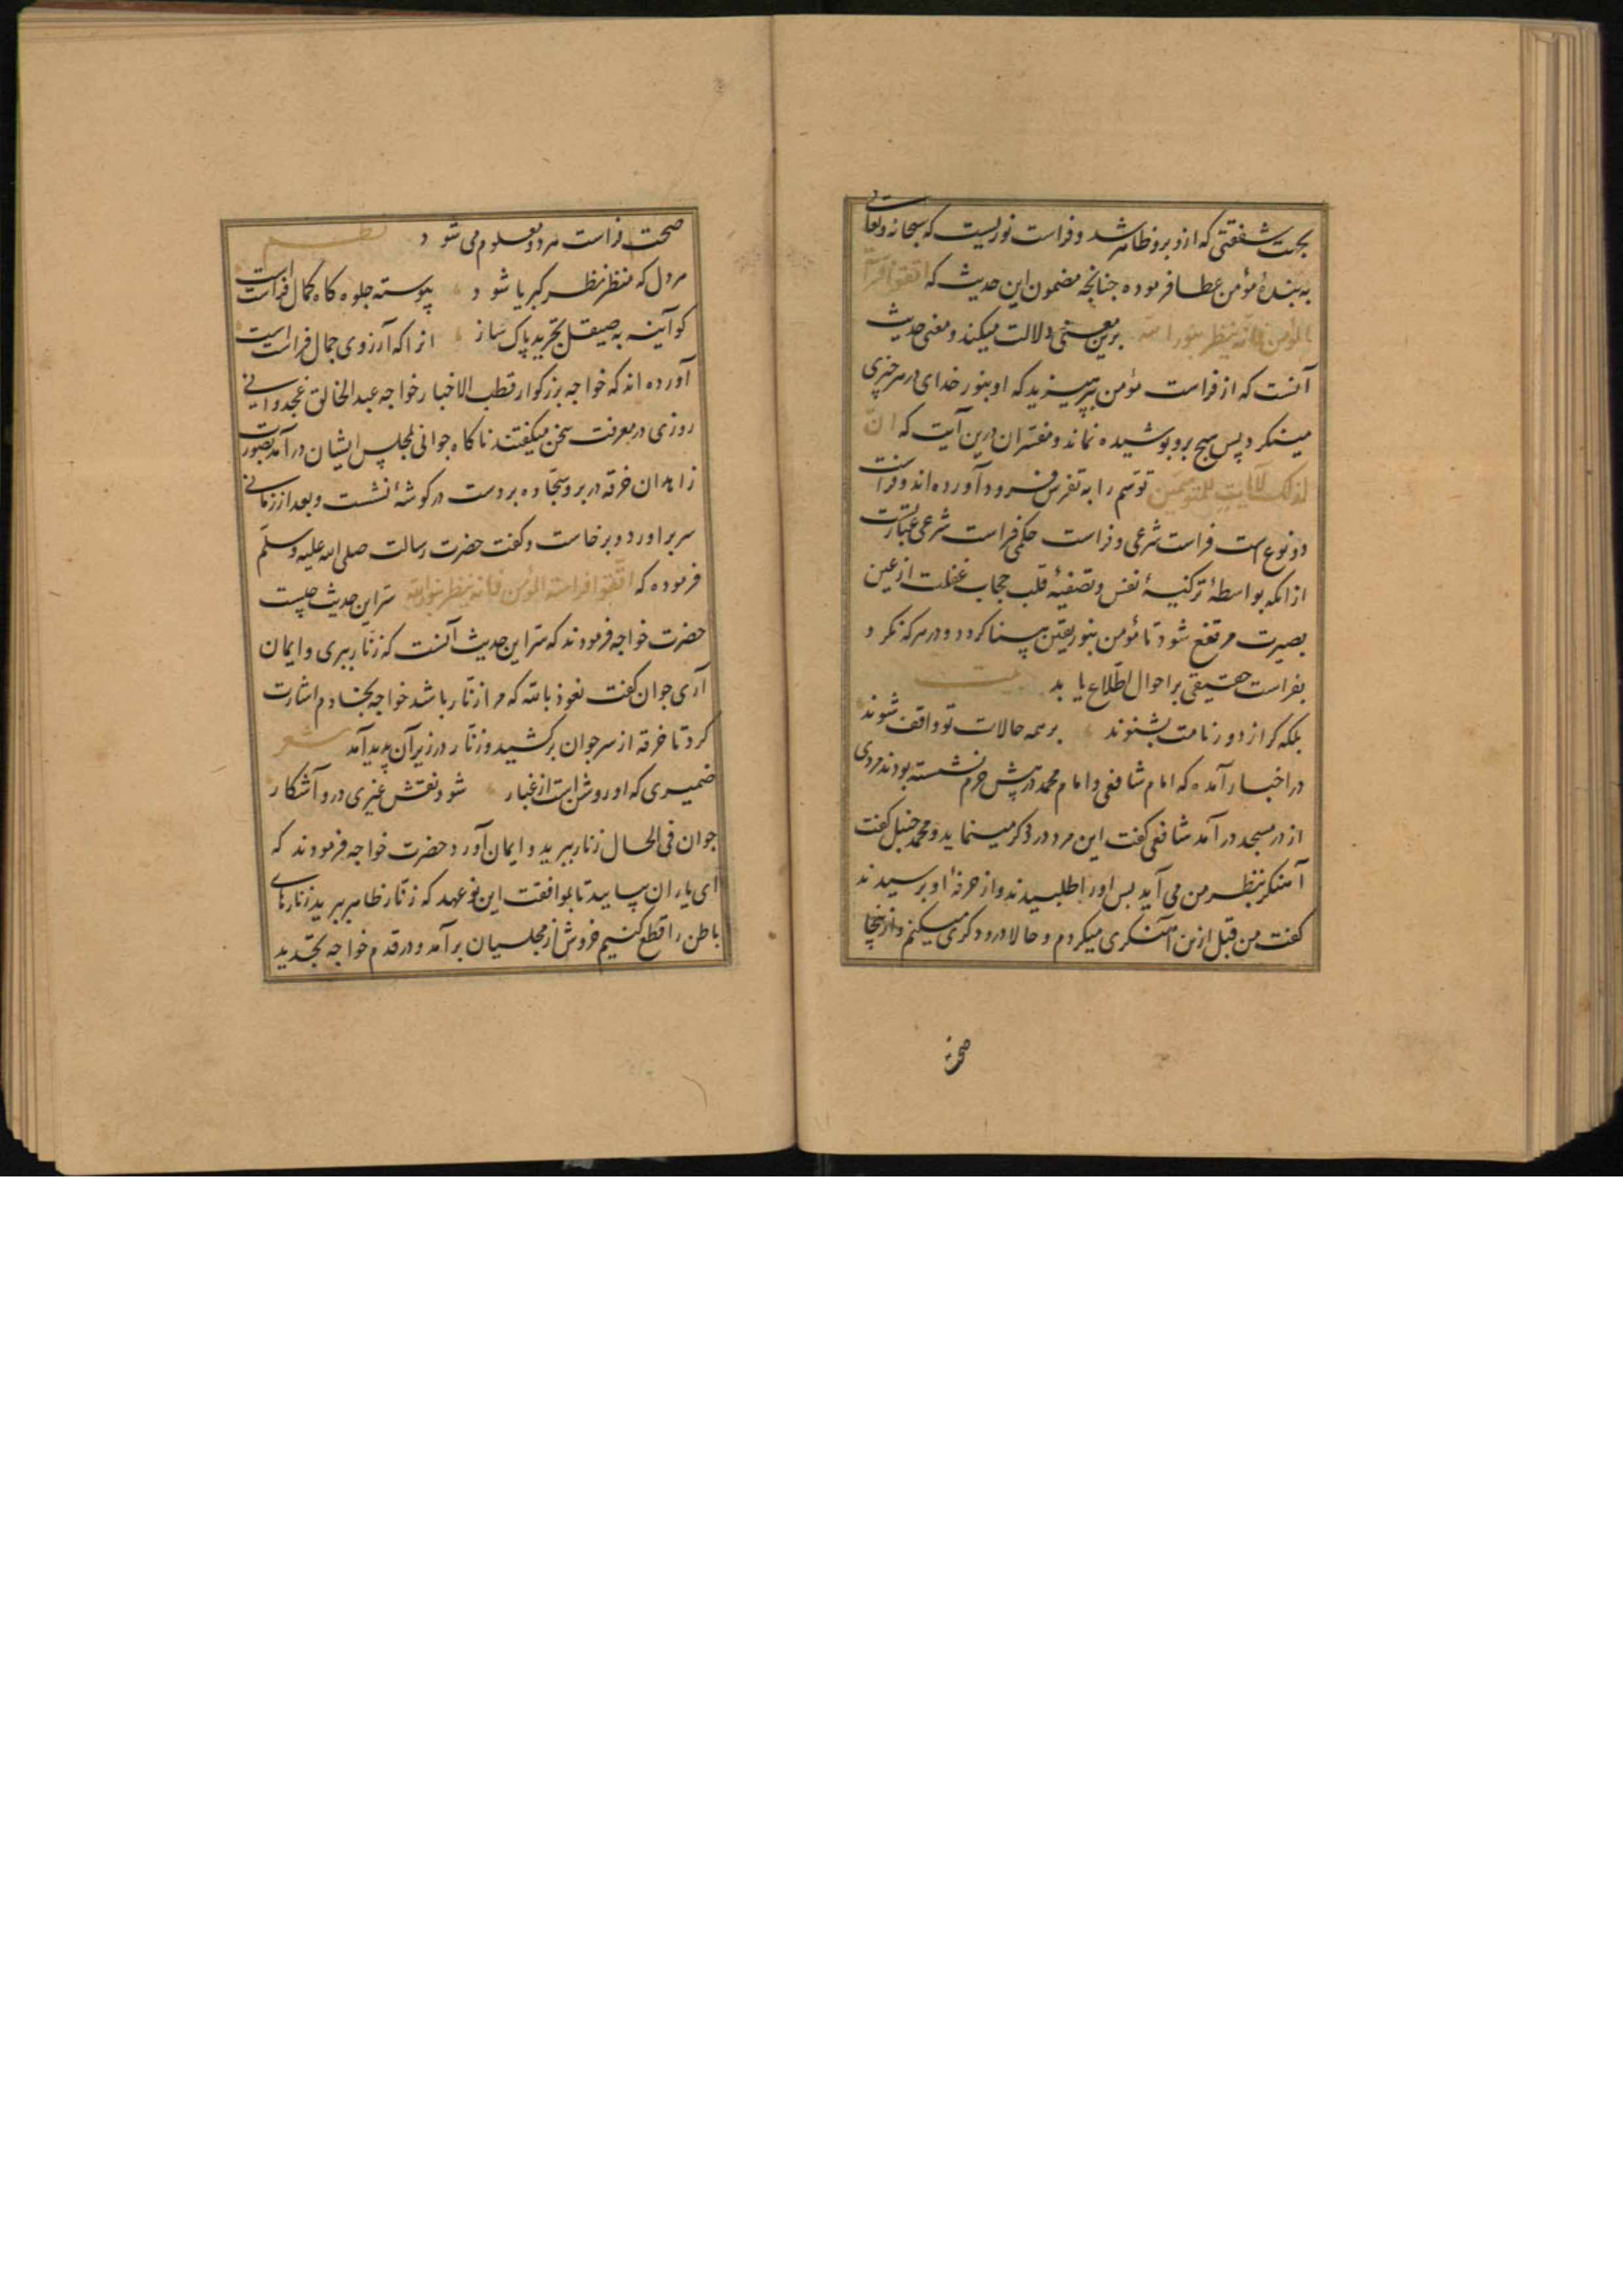 بجهت شفقتی که ازو برو ظاهر شد و فراست نوریست که سبحانه و تعالی
به بندهٔ مؤمن عطا فرموده جنانجه مضمون این حدیث که اتقوا فراسة
المؤمن فانه ینظر بنور الله برین معنی دلالت میکند و معنی حدیث
آنست که از فراست مؤمن بپرهیزید که او بنور خدای در هر چیزی
مینکرد پس هیچ برو پوشیده نماند و مفسران درین آیت که ان
فی ذلک لآیات للمتوسمین توسم را به تفرس فرود آورده اند و فراست
دو نوع است فراست شرعی و فراست حکمی فراست شرعی عبارتست
از انکه بواسطهٔ تزکیهٔ نفس و تصفیهٔ قلب حجاب غفلت از عین
بصیرت مرتفع شود تا مؤمن بنور یقین بینا کردد و در هر که نکرد
بفراست حقیقی بر احوال اطلاع یابد بیت
بلکه کر از دور نامت بشنوند بر همه حالات تو واقف شوند
در اخبار آمده که امام شافعی و امام محمد در پیش حرم نشسته بودند مردی
از در مسجد در آمد شافعی کفت این مرد درودکر مینماید و محمد حنبل کفت
آهنکر بنظر من می آید بس او را طلبیدند و از حرفهٔ او برسیدند
کفت من قبل ازین آهنکری میکردم و حالا درودکری میکنم و ازینجا
صحت
صحت فراست هر دو معلوم می شود نظم
هر دل که منظر نظر کبریا شود پیوسته جلوه کاه کمال فراست است
کو آینه به صیقل تجرید پاک ساز انرا که آرزوی جمال فراست است
آورده اند که خواجه بزرکوار قطب الاخیار خواجه عبد الخالق غجدوانی
روزی در معرفت سخن میکفتند ناکاه جوانی بمجلس ایشان در آمد بصورت
زاهدان خرقه در بر و سجاده بر دست در کوشهٔ نشست و بعد از زمانی
سر براورد و برخاست و کفت حضرت رسالت صلی الله علیه وسلم
فرموده که اتقوا فراسة المؤمن فانه ینظر بنور الله سر این حدیث چیست
حضرت خواجه فرمودند که سر این حدیث آنست که زنار ببری و ایمان
آری جوان کفت نعوذ بالله که مرا زنار باشد خواجه بخادم اشارت
کرد تا خرقه از سر جوان برکشید و زنار در زیر آن پدید آمد شعر
ضمیری که او روشن است از غبار شود نقش غیری درو آشکار
جوان فی الحال زنار ببرید و ایمان آورد حضرت خواجه فرمودند که
ای یاران بیایید تا بموافقت این نو عهد که زنار ظاهر ببرید زنارهای
باطن را قطع کنیم خروش از مجلسیان برآمد و در قدم خواجه بتجدید